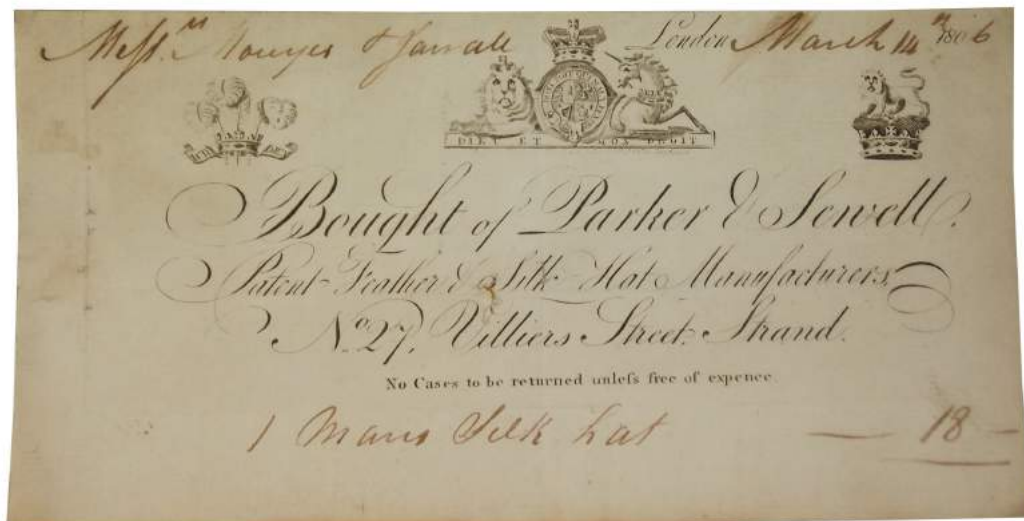 Mess.rs & London March 14th 1806
DIEU ET MON DROIT
Bought of Parker & Sewell.
Patent Feather & Silk Hat Manufacturers,
No. 27, Villiers Street, Strand.
No Cases to be returned unleſs free of expence.
1 Mans Silk hat — 18 —